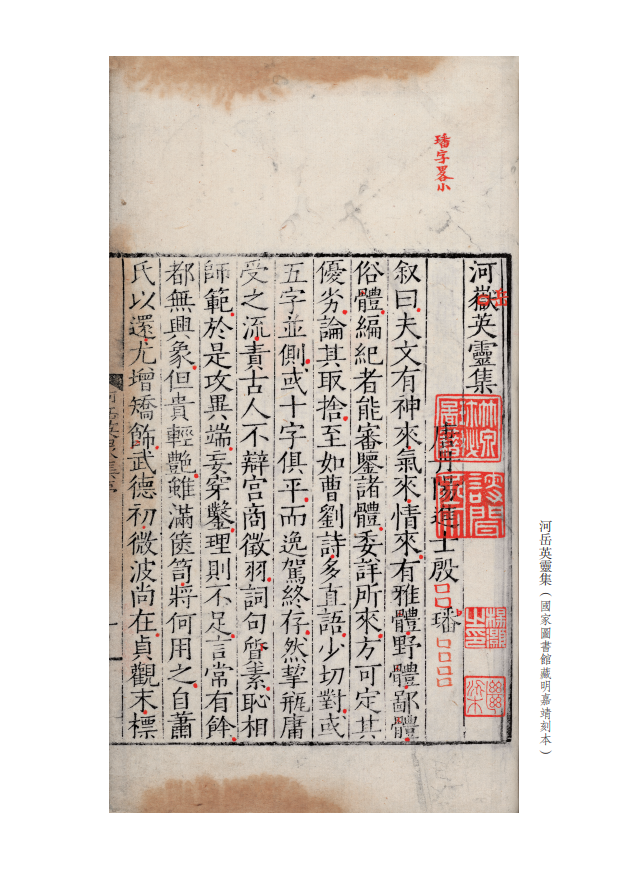 璠字畧小
河嶽英靈集
岳
唐丹陽進士殷璠
叙曰夫文有神來氣來情來有雅體野體鄙體
俗體編紀者能審鑒諸體委詳所來方可定其
優劣論其取捨至如曹劉詩多直語少切對或
五字並側或十字俱平而逸駕終存然挈瓶庸
受之流責古人不辯宮商徵羽詞句質素恥相
師範於是攻異端妄穿鑿理則不足言常有餘
都無興象但貴輕艷雖滿篋笥將何用之自蕭
氏以還尤增矯飾武德初微波尚在貞觀末標
河岳英靈集（國家圖書館藏明嘉靖刻本）